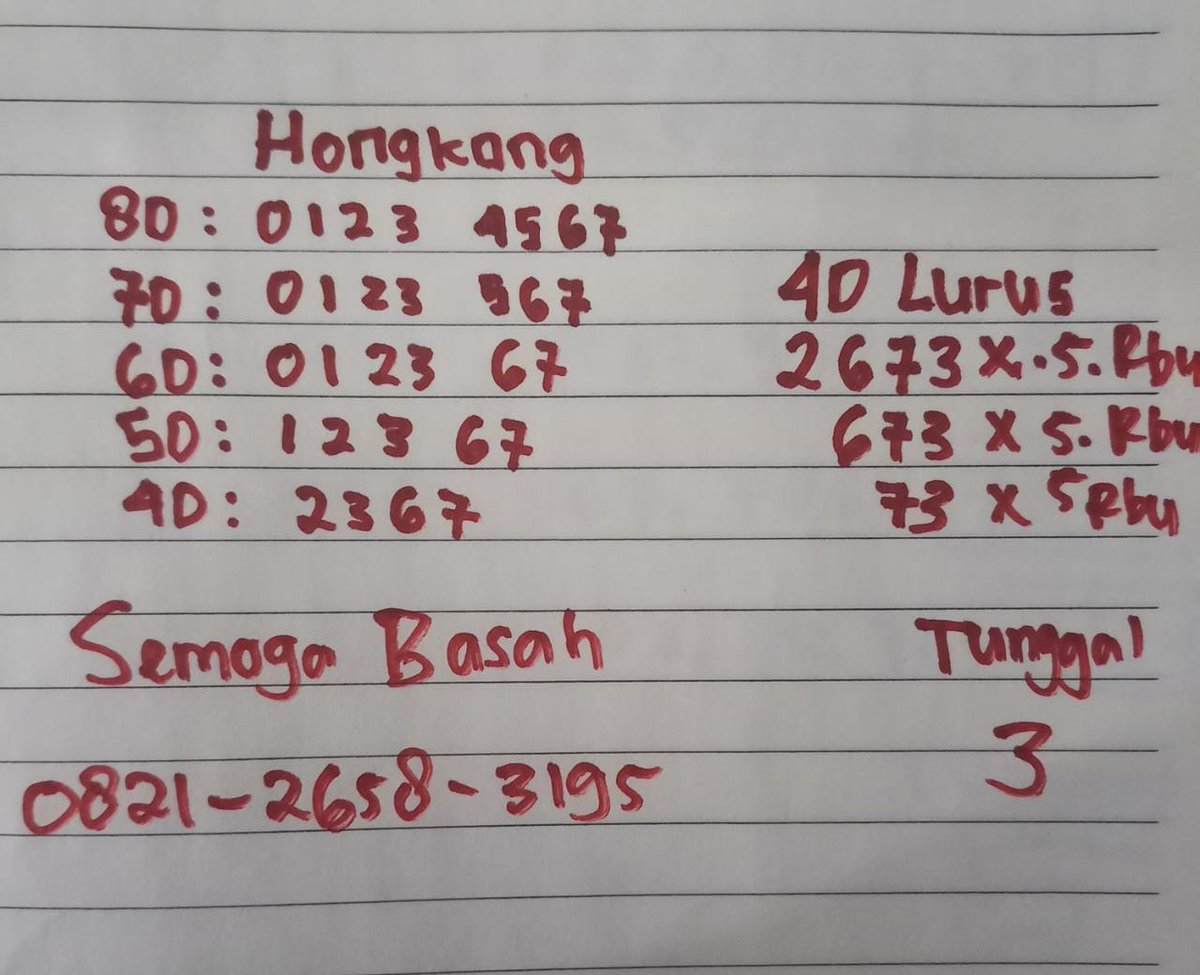 Hongkong
8D: 0123 4567
7D: 0123 567
6D: 0123 67
5D: 123 67
4D: 2367
4D Lurus
2673 x.5.Rbu
673 x 5.Rbu
73 x 5Rbu
Semoga Basah
0821-2658-3195
Tunggal
3